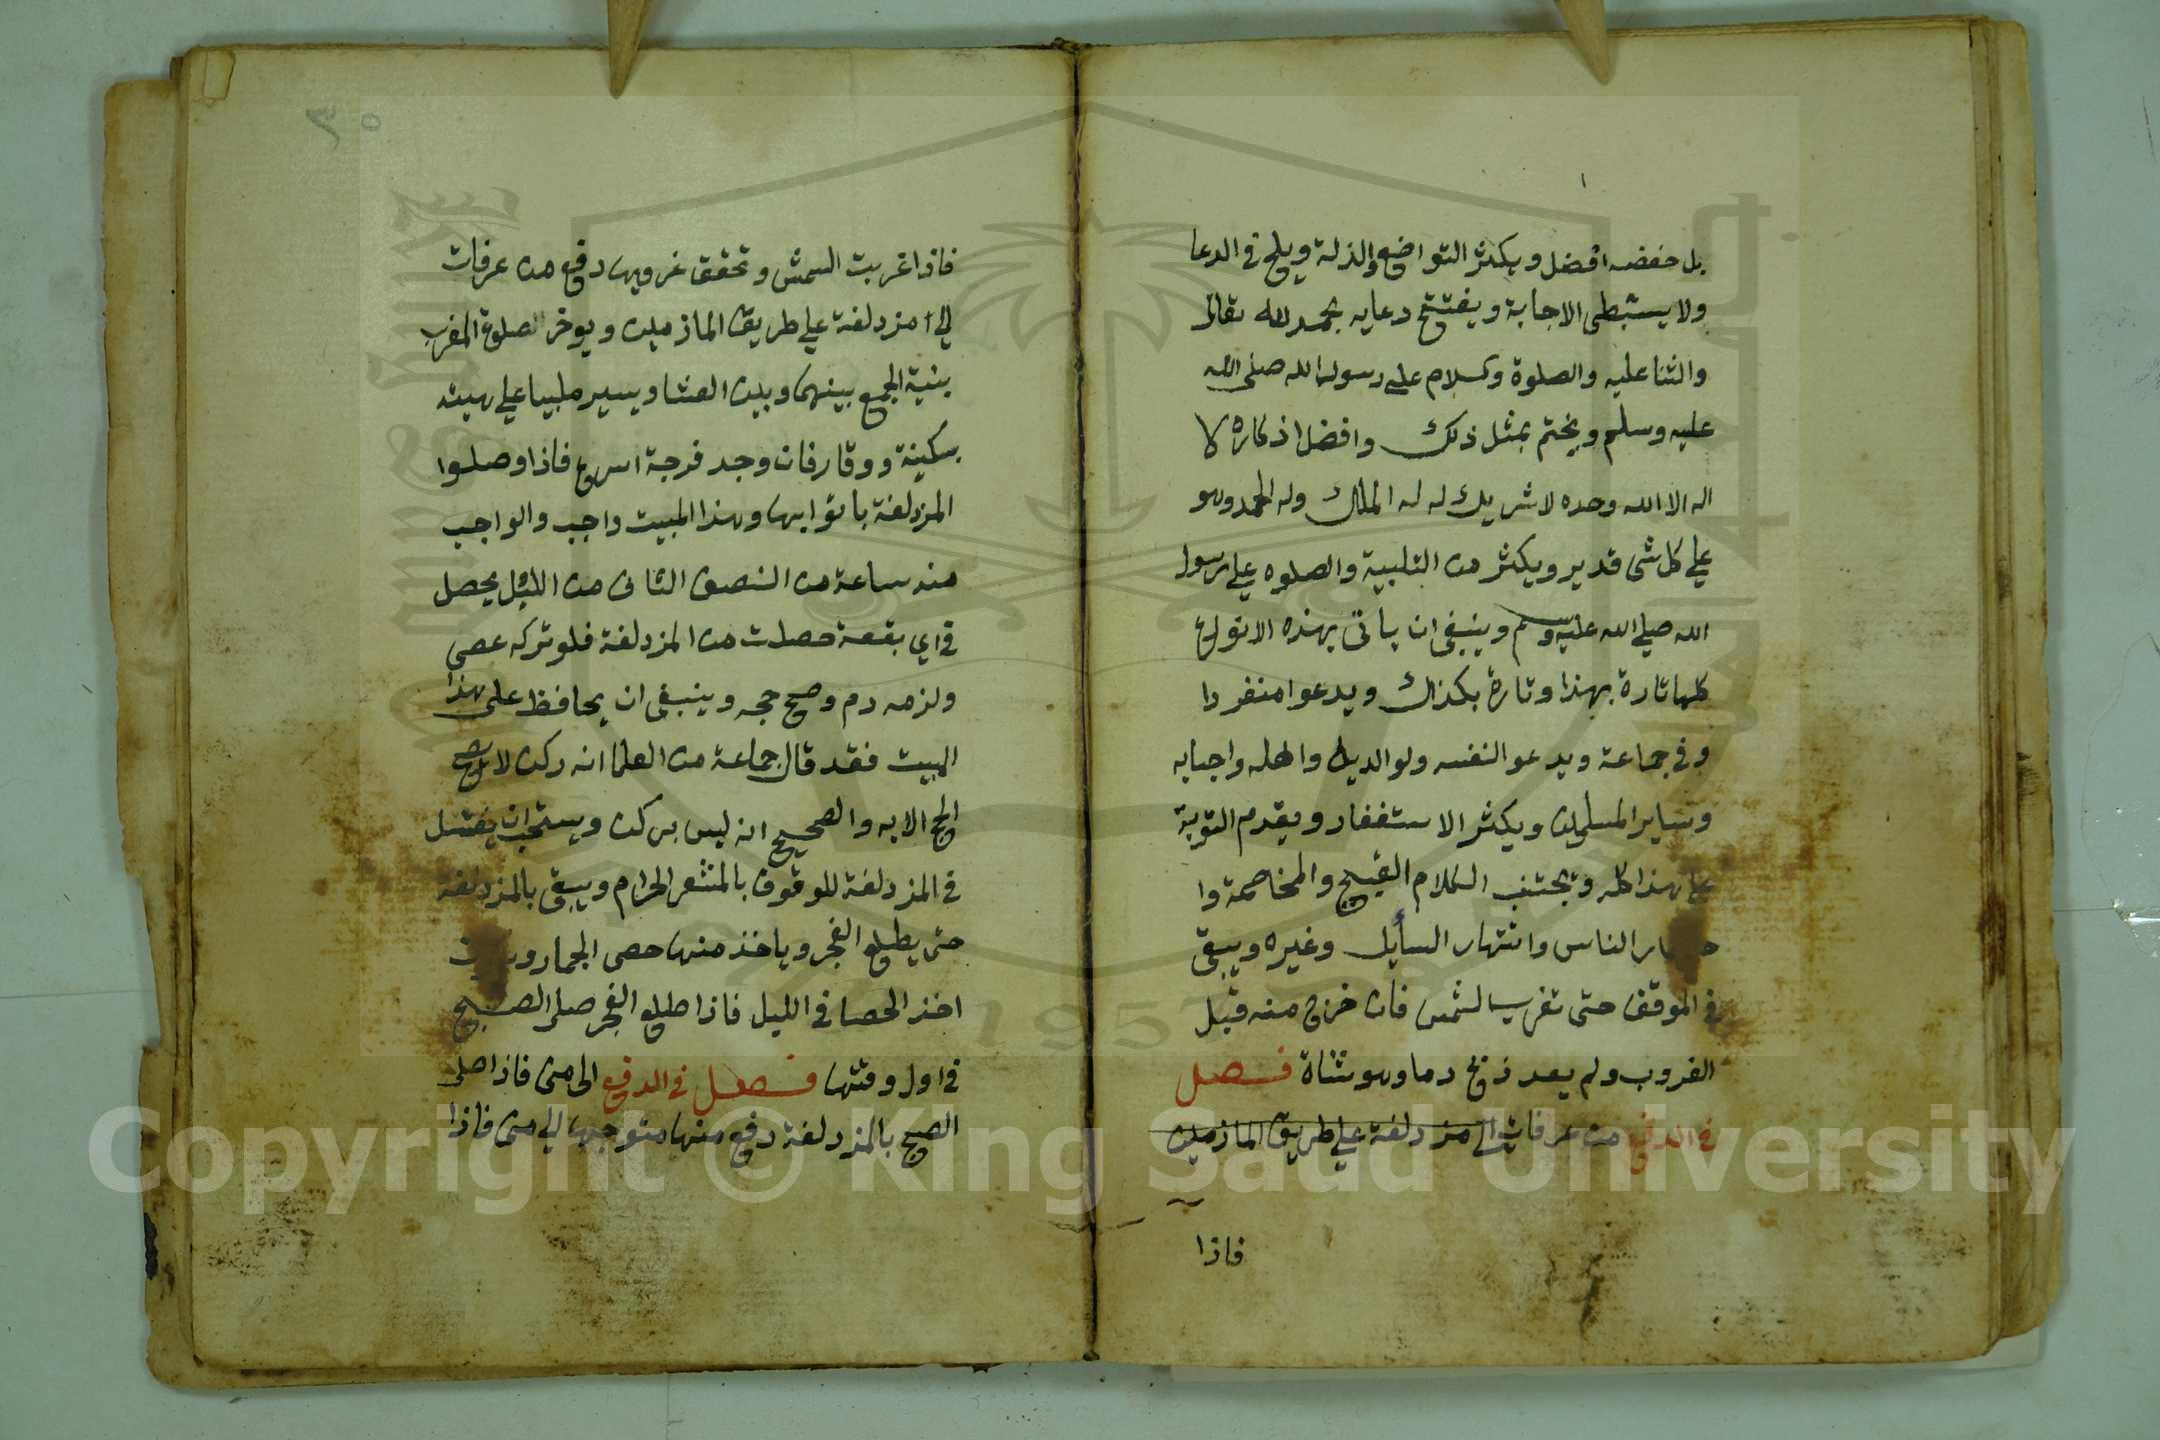 بل خفضه افضل ويكثر التواضع والذلة ويلح في الدعا
ولا يستبطي الاجابة ويفتتح دعايه بحمد لله تعالى
والثنا عليه والصلوة وسلام على رسول الله صلى الله
عليه وسلم ويختم بمثل ذلك وافضل اذكاره لا
اله الا الله وحده لا شريك له له الملك وله الحمد وهو
على كل شى قدير ويكثر من التلبية والصلوه على رسول
الله صلى الله عليه وسلم وينبغى ان ياتى بهذه الانواع
كلها تارة بهذا وتارة بكذاك ويدعوا منفردا
وفي جماعة ويدعو النفسه ولوالديه واهله واحبابه
وساير المسلمين ويكثر الاستغفار ويقدم التوبة
على هذا كله وتجتنب الكلام القبيح والمخاصمة وا
الناس وانتهار السأيل وغيره ويبقى
في الموقف حتى تغرب لشمس فان خرج منه قبل
الغروب ولم يعد ذبح دما وهو شاة فصل
في الدفع من عرفات الى مزدلفة على طريق المازمين
فاذا
٣٥
فاذا غربت الشمش وتحقق غروبها دفع من عرفات
الي مزدلفة على طريق المازمين ويوخر الصلوة المغرب
بنية الجمع بينهما وبين العشا ويسير ملبيا على هيئه
بسكينة ووقار فان وجد فرجة اسرع فاذا وصلوا
المزدلفة باتوا بها وهذا المبيت واجب والواجب
منه ساعة من النصف الثانى من الليل يحصل
في اي بقعة حصلت من المزدلفة فلو تركه عصى
ولزمه دم وصح حجه وينبغى ان يحافظ على هذا
المبيت فقد قال جماعة من العلما انه ركن لا يصح
الحج الا به والصحيح انه ليس بركن ويستحب ان يغتسل
في المزدلفة للوقوف بالمشعر الحرام ويبقى بالمزدلفة
حتى يطلع الفجر وياخذ منها حصى الجمار
اخذ الحصا في الليل فاذا طلع الفجر صلى الصبح
في اول وقتها فصل في الدفع الى منى فاذا صلى
الصبح بالمزدلفة دفع منها متوجها الي منى فاذا
1957
Copyright © King Saud University